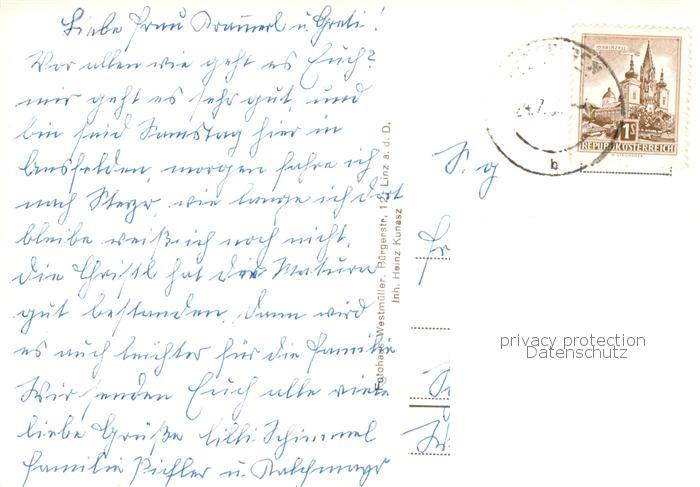 Liebe Frau Krammerl u. Greti!
Vor allen wie geht es Euch?
mir geht es sehr gut, und
bin seid Samstag hier in
Ansfelden, morgen fahre ich
nach Steyr, wie lange ich dort
bleibe weiß ich noch nicht.
Die Christl hat die Matura
gut bestanden. Dann wird
es auch leichter für die Familie
Wir senden Euch alle viele
liebe Grüße Lilli Schimmel
Familie Pichler u. Kalchmayr
Fotohaus Westmüller, Bürgerstr. 12, Linz a. d. D.
Inh. Heinz Kunasz
S. g
Fr
MARIAZELL
1S
REPUBLIK ÖSTERREICH
b
privacy protection
Datenschutz